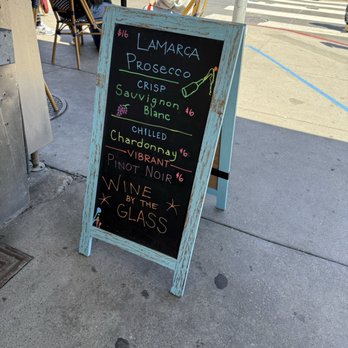 $16
LAMARCA
PROSECCO
CRISP
SAUVIGNON $6
BLANC
CHILLED
CHARDONNAY $6
VIBRANT
PINOT NOIR $6
WINE
BY THE
GLASS